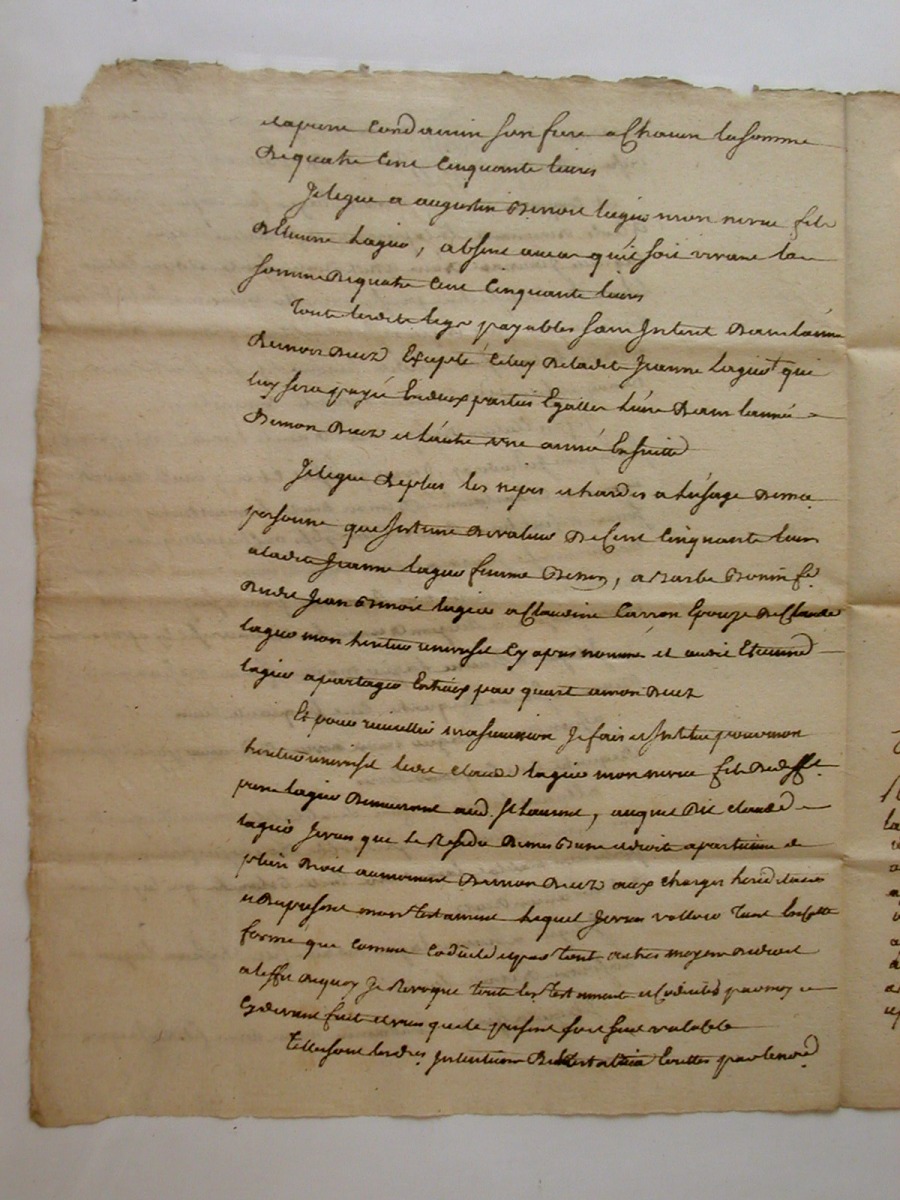 et a pierre Condamin son frere a Chacun la somme
De quatre Cent Cinquante livres
Je legue a augustin Benoit lagier mon neveu fils
D'Etienne lagier, absent aucas qu'il soit vivant la
somme De quatre Cent Cinquante livres
Tout lesdits legs payables sans Interet Dans l'année
De mon Decez Excepté Celuy De ladite Jeanne lagier qui
luy sera payé En deux parties Egalles l'une Dans l'année
De mon Decez et l'autre une année Ensuitte
Je legue De plus les nipes et hardes a l'usage De ma
personne que J'estime De valeur De Cent Cinquante livres
a ladite Jeanne lagier femme, a Barbe Bonin fe.
Dudit Jean Benoit lagier a Claudine Carron Epouze De Claude
lagier mon heritier universel Cy apres nommé et audit Etienne
lagier a partager Entreux par quart a mon Decez
Et pour recueillir ma succession Je fais et Institue pour mon
heritier universel ledit Claude lagier mon neveu fils De defft.
pierre lagier Demeurant aud. St Laurent, auquel Dit claude
lagier Je veux que Le Residu De mes Biens et droits apartienne de
plein Droit au moment De mon Decez aux charges hereditaires
et Du present mon Testament lequel Je veux valloir Tant En cette
forme que comme Codicile et par tout autres moyens de droit
a l'effet De quoy Je Revoque toute les Testaments et Codiciles par moy
Cy devant fait et veux que le present soit seul valable
Telles sont lesdites Intentions Du Testateur Ecrittes par le nore.